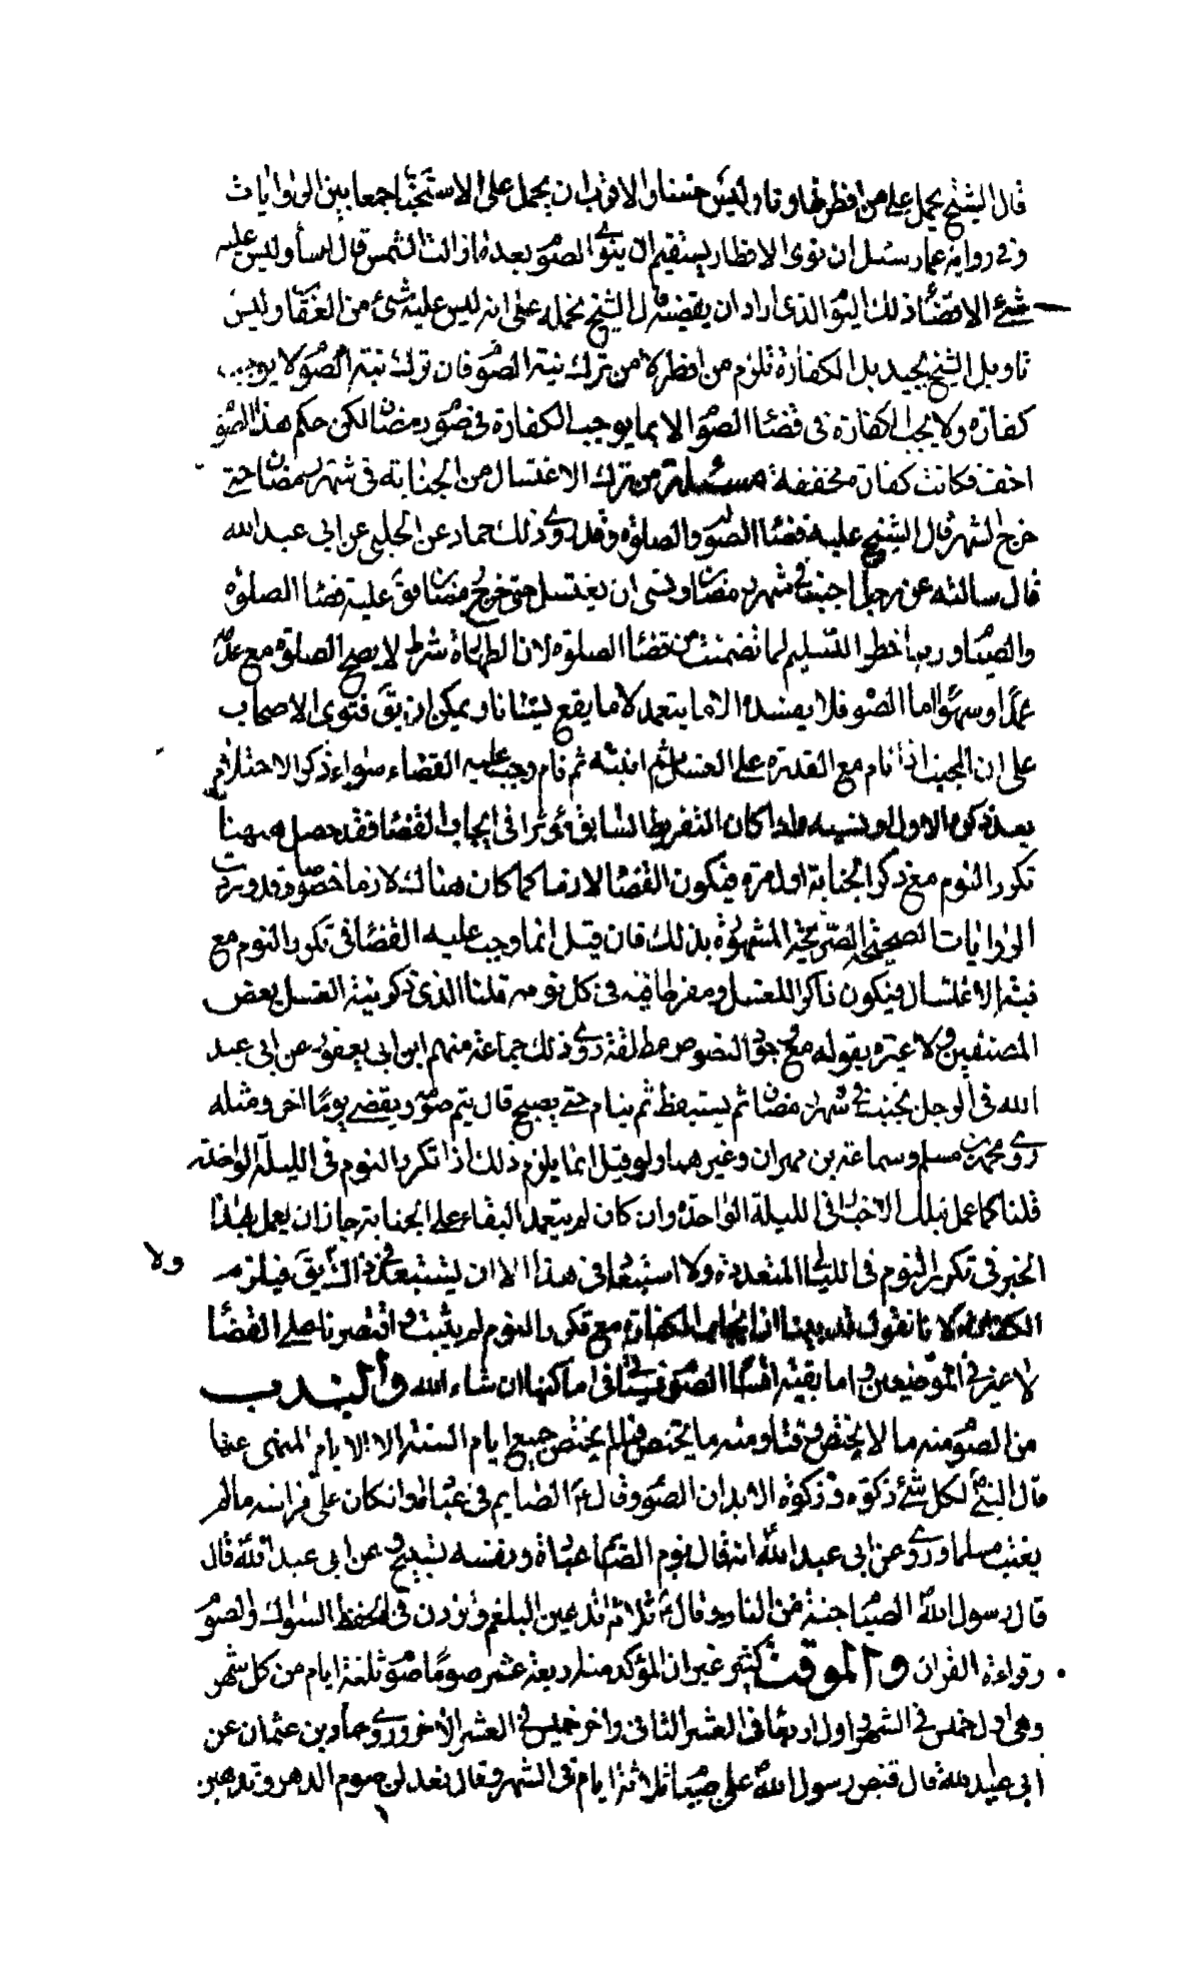 قال الشيخ يحمل على من افطر تهاونا وليس حسنا والاقرب ان يحمل على الاستحباب جمعا بين الروايات
وفي رواية عمار سئل ان نوى الافطار يستقيم ان ينوي الصوم بعد ما زالت الشمس قال أساء وليس عليه
شيء الا قضاء ذلك اليوم الذي اراد ان يقضيه قال الشيخ نحمله على انه ليس عليه شيء من العقاب وليس
تاويل الشيخ بجيد بل الكفارة تلزم من افطر لا من ترك نية الصوم فان ترك نية الصوم لا يوجب
كفارة ولا يجب الكفارة في قضاء الصوم الا بما يوجب الكفارة في صوم رمضان لكن حكم هذا الصوم
اخف فكانت كفارة مخففة مسئلة من ترك الاغتسال من الجنابة في شهر رمضان حتى
خرج الشهر قال الشيخ عليه قضاء الصوم والصلوة وقد روى ذلك حماد عن الحلبي عن ابي عبد الله
قال سالته عن رجل اجنب في شهر رمضان ونسى ان يغتسل حتى خرج رمضان قال عليه قضاء الصلوة
والصيام وربما خطر التسليم لما تضمنت من قضاء الصلوة لان الطهارة شرط لا يصح الصلوة مع عدمه
عمدا وسهوا اما الصوم فلا يفسده الا ما يتعمد لا ما يقع نسيانا ويمكن ان يق فتوى الاصحاب
على ان المجنب اذا نام مع القدرة على الغسل ثم انتبه ثم نام وجب عليه القضاء سواء ذكر الاحتلام
بعد نومه الاول او نسيه واذا كان التفريط السابق مؤثرا في ايجاب القضاء فقد حصل ههنا
تكرر النوم مع ذكر الجنابة اول مرة فيكون القضاء لازما كما كان هناك لازما خصوصا وقد وردت
الروايات الصحيحة الصريحة المشهورة بذلك فان قيل انما وجب عليه القضاء في تكرر النوم مع
نية الاغتسال فيكون ذاكرا للغسل ومفرطا فيه في كل نومه قلنا الذي ذكر نية الغسل بعض
المصنفين ولا عبرة بقوله مع وجود النصوص مطلقة روى ذلك جماعة منهم ابن ابي يعفور عن ابي عبد
الله في الرجل يجنب في شهر رمضان ثم يستيقظ ثم ينام حتى يصبح قال يتم صومه ويقضي يوما اخر ومثله
روى محمد بن مسلم وسماعة بن مهران وغيرهما ولو قيل انما يلزم ذلك اذا تكرر النوم في الليلة الواحدة
قلنا كما عمل بتلك الاخبار في الليلة الواحدة وان كان لم يتعمد البقاء على الجنابة جاز ان يعمل بهذا
الخبر في تكرر النوم في الليالي المتعددة ولا استبعاد في هذا الا ان يستبعد مجرد التفريق فيلزم
الكفارة لانا نقول لم يثبت واقتصرنا على القضاء
لا غير في الموضعين واما بقية اقسام الصوم فسيأتي في اماكنها ان شاء الله والندب
من الصوم منه ما لا يختص وقتا ومنه ما يختص فما لم يختص جميع ايام السنة الا الايام المنهي عنها
قال النبي لكل شيء زكوة وزكوة الابدان الصوم وقال ع الصايم في عبادة وان كان على فراشه ما لم
يغتب مسلما وروى عن ابي عبد الله انه قال نوم الصائم عبادة ونفسه تسبيح وعن ابي عبد الله قال
قال رسول الله الصيام جنة من النار وقال ع ثلاثة تذهبن البلغم وتزدن في الحفظ السواك والصوم
وقراءة القران والموقت كثير غير ان المؤكد منه اربعة عشر صوما صوم ثلثة ايام من كل شهر
وهي اول خميس في الشهر واول اربعاء في العشر الثاني واخر خميس في العشر الاخر وروى حماد بن عثمان عن
ابي عبد الله قال قبض رسول الله على صيام ثلاثة ايام في الشهر وقال تعدلن صوم الدهر وتذهبن
ولا